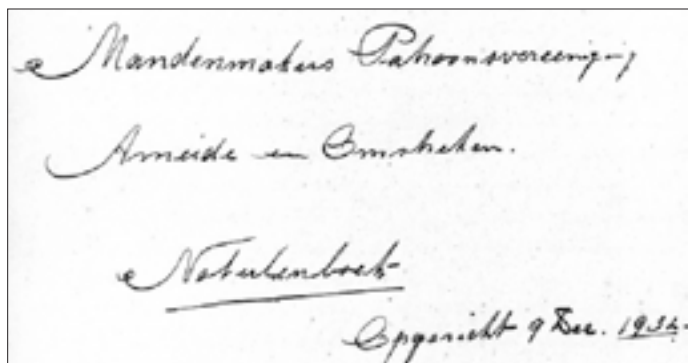 Mandenmakers Patroonsvereeniging
Ameide en Omstreken.
Notulenboek
Opgericht 9 Dec. 1932.